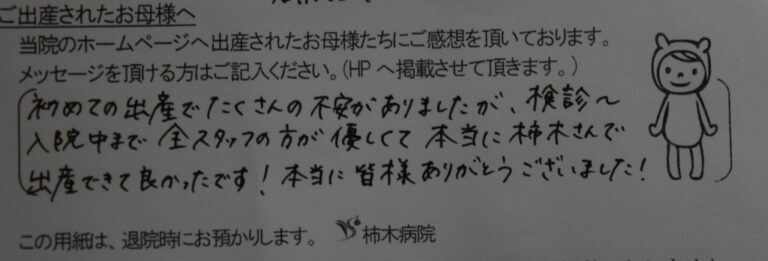 ご出産されたお母様へ
当院のホームページへ出産されたお母様たちにご感想を頂いております。
メッセージを頂ける方はご記入ください。(HPへ掲載させて頂きます。)
初めての出産でたくさんの不安がありましたが、検診〜
入院中まで全スタッフの方が優しくて本当に柿木さんで
出産できて良かったです！本当に皆様ありがとうございました！
この用紙は、退院時にお預かりします。 柿木病院